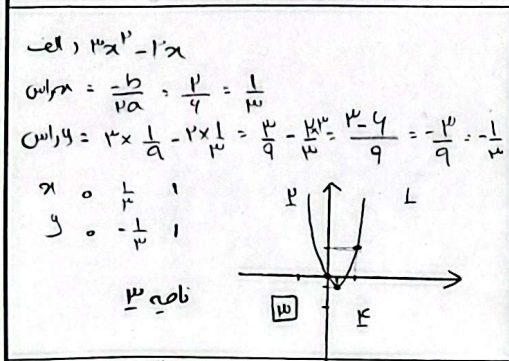 الف) ۳x² - ۲x
xراس = -b/۲a = ۲/۶ = ۱/۳
yراس = ۳ × ۱/۹ - ۲ × ۱/۳ = ۳/۹ - ۲×۳/۳ = ۳-۶/۹ = -۳/۹ = -۱/۳
x ۰ ۱/۳ ۱
y ۰ -۱/۳ ۱
۲ ۱
ناحیه ۳
۳ ۴